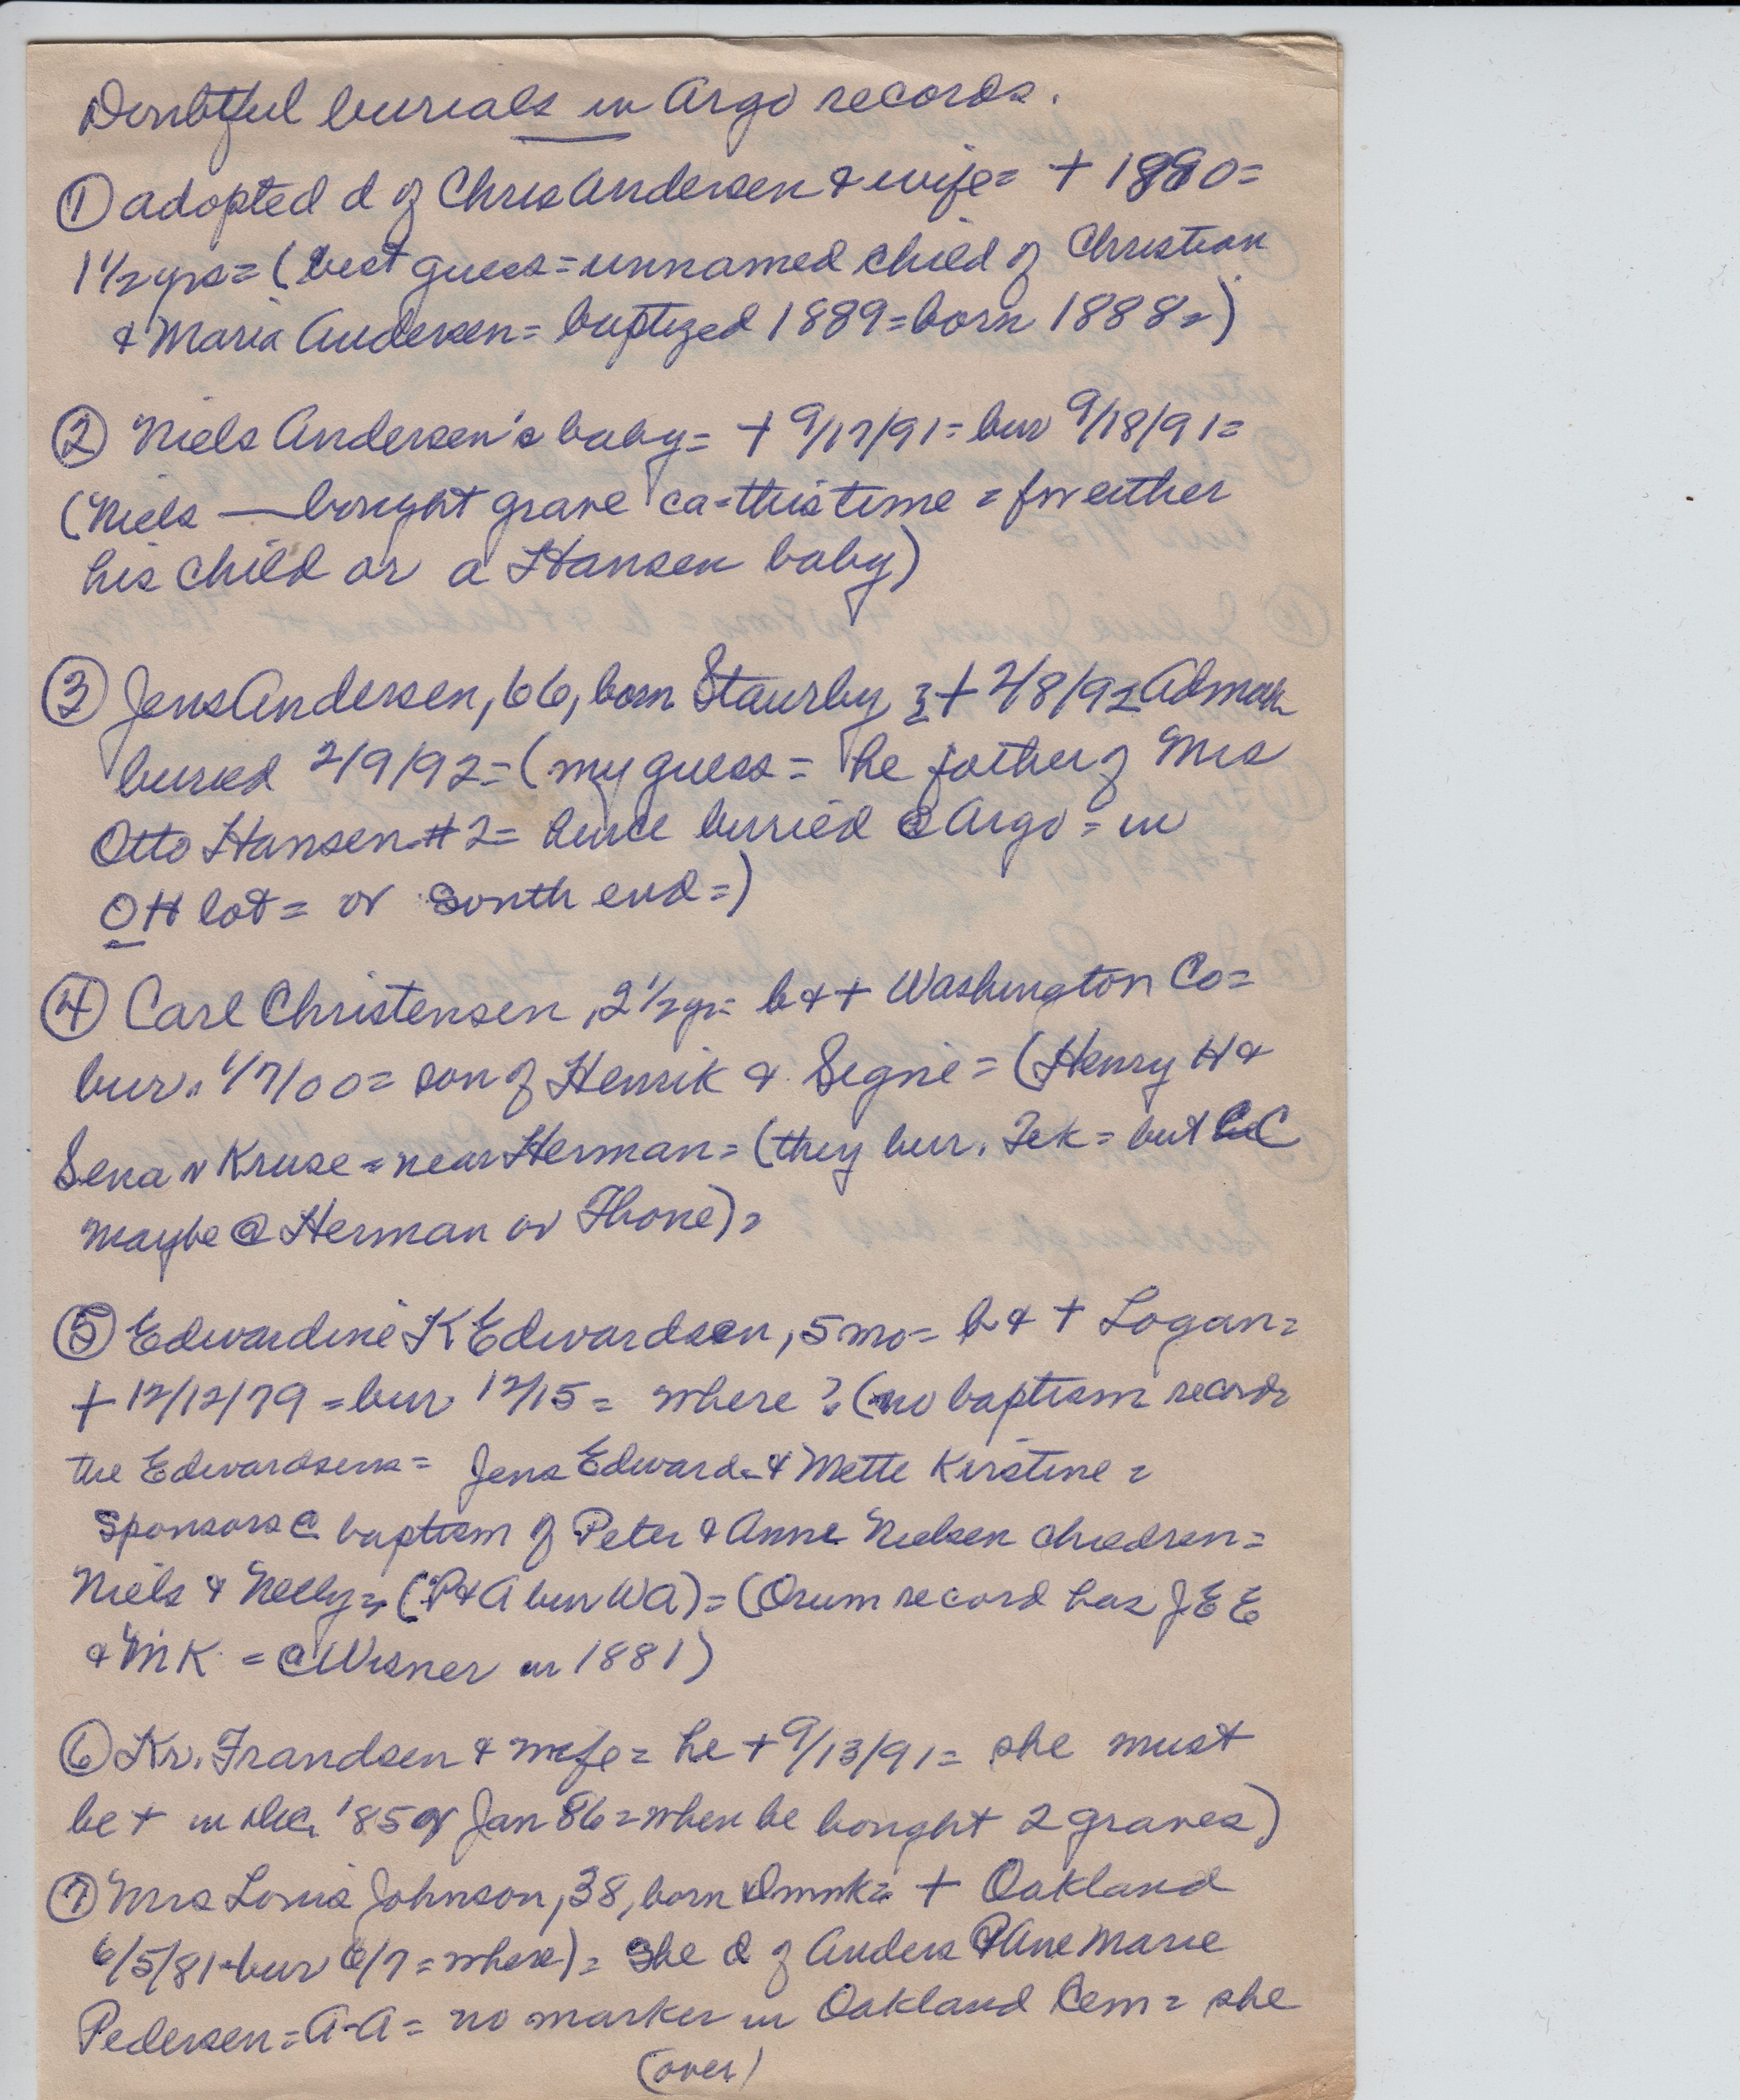 Doubtful burials in Argo records.
① adopted d of Chris Andersen & wife= + 1890=
1 1/2 yrs= (best guess= unnamed child of Christian
& Maria Andersen= baptized 1889= born 1888=)
② Niels Andersen's baby= + 9/17/91= bur 9/18/91=
(Niels — bought grave ca-this time = for either
his child or a Hansen baby)
③ Jens Andersen, 66, born Staurby + 2/8/92 Admah
buried 2/9/92= (my guess= he father of Mrs
Otto Hansen #2= hence burried @ Argo= in
OH lot= or south end=)
④ Carl Christensen, 2 1/2 yr= b & + Washington Co=
bur. 1/7/00= son of Henrik & Segne= (Henry H &
Sena N Kruse= near Herman= (they bur. Tek= but CC
maybe @ Herman or Fhone)=
⑤ Edwardine K Edwardsen, 5 mo= b & + Logan=
+ 12/12/79 = bur 12/15= where? (no baptism record=
the Edwardsens= Jens Edward & Mette Kirstine=
Sponsors @ baptism of Peter & Anne Nielsen children=
Niels & Nelly= (P & A bur WA)= (Orum record has JEE
& MK = @ Wisner in 1881)
⑥ Kr. Frandsen & wife= he + 9/13/91= she must
be + in Dec '85 or Jan 86= when he bought 2 graves)
⑦ Mrs Louis Johnson, 38, born Dnmk= + Oakland
6/5/81-bur 6/7= where)= She d of Anders & Ane Marie
Pedersen= A-A= no marker in Oakland Cem= she
(over)